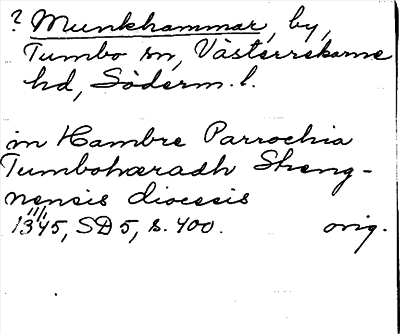 ? Munkhammar, by,
Tumbo sn, Västerrekarne
hd, Söderm. l.
in Hambre Parrochia
Tumbohæradh Streng-
nensis diocesis
1345, SD 5, s. 400. orig.